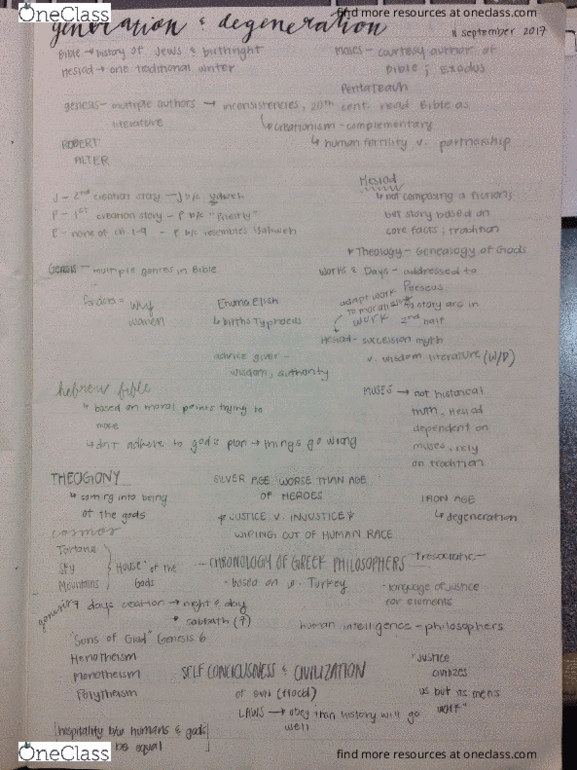 OneClass
find more resources at oneclass.com
generation & degeneration
September 2017
Bible → history of Jews & birthright
Hesiod → one traditional writer
Moses - courtesy author of
Bible; Exodus
Pentateuch
genesis - multiple authors → inconsistencies, 20th cent. read Bible as
literature
↳ creationism - complementary
↳ human fertility v. partnership
ROBERT
ALTER
J - 2nd creation story - J b/c Yahweh
P - 1st creation story - P b/c "Priestly"
E - none of ch 1-9 - E b/c
Hesiod
↳ not composing a fictional
but story based on
core facts, tradition
* Theology - Genealogy of Gods
Genesis - multiple genres in Bible
Works & Days - addressed to
Perseus
adapt work
story arc in
2nd half
Pandora = why
women
Enuma Elish
↳ births Typhoeus
Hesiod - succession myth
v. wisdom literature (W/D)
advice giver -
wisdom, authority
hebrew bible
↳ based on moral points trying to
make
↳ don't adhere to god's plan → things go wrong
MUSES → not historical
truth, Hesiod
dependent on
muses, rely
on tradition
THEOGONY
↳ coming into being
of the gods
SILVER AGE WORSE THAN AGE
OF HEROES
* JUSTICE V. INJUSTICE *
WIPING OUT OF HUMAN RACE
IRON AGE
↳ degeneration
cosmos
Sky
Mountains
House of the
Gods
- CHRONOLOGY OF GREEK PHILOSOPHERS
- based on w. Turkey
Presocratic -
- language of justice
for elements
days creation → night & day
* sabbath (7)
human intelligence - philosophers
"Sons of God" Genesis 6
Henotheism
Monotheism
Polytheism
SELF CONCIOUSNESS & CIVILIZATION
of evil (flood)
LAWS → obey than history will go
well
"Justice
civilizes
us but as men's
work"
[hospitality b/w humans & gods]
be equal
OneClass
find more resources at oneclass.com